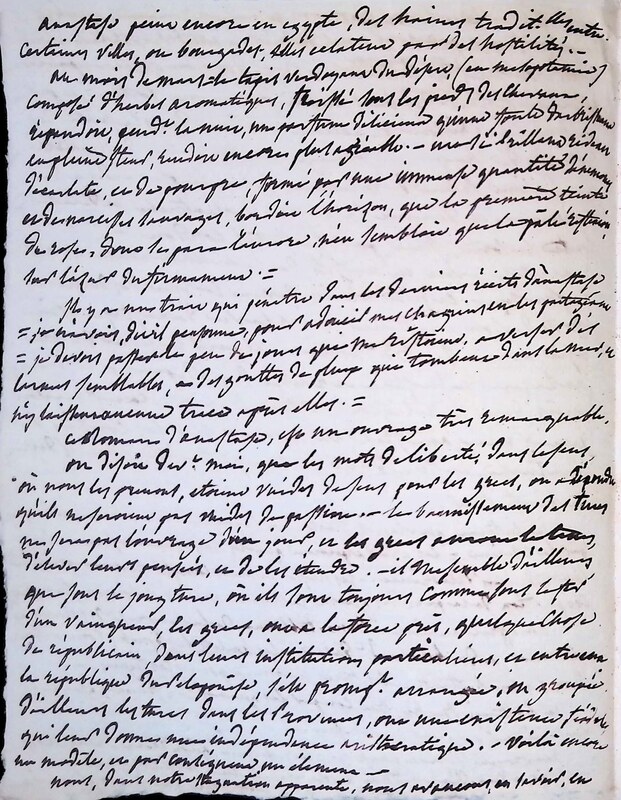 anastase peint encore en egypte, des haines traditielles entre
certaines villes, ou bourgades, elles eclatent par des hostilités. –
au mois de mars – le tapis verdoyant du désert, (en mésopotamie)
composé d'herbes aromatiques, froissé sous les pieds des chevaux,
répandoit, pendt la nuit, un parfum délicieux qu'une foule d'arbustes
en pleine fleur, rendoit encore plus agréable. – un si brillant rideau
d'écarlate, et de pourpre, formé par une immense quantité d'anémones
et de narcisses sauvages, bordoit l'horison, que la première teinte
de rose, dont se para l'aurore, n'en sembloit que la pâle
sur l'azur du firmament. =
Il y a un trait qui pénètre dans les derniers récits d'anastase
= je n'avois, dit-il personne, pour adoucir mes chagrins en les partageant
= je devois passer le peu de jours que me restoient, à verser des
larmes semblables, à des gouttes de pluie qui tombent dans la mer, et
n'y laissent aucune trace après elles. =
ce Roman d'anastase, est un ouvrage très remarquable.
on disoit devt moi, que les mots de liberté, dans le sens,
où nous les prenons, etoient vuides de sens pour les grecs, on a répondu
qu'ils ne seroient pas vuides de passion. – le bannissement des turcs
ne sera pas l'ouvrage d'un jour, et les grecs auront le tems,
d'élever leurs pensées, et de les étendre. – il me semble d'ailleurs
que sous le joug turc, où ils sont toujours comme sous le fer
d'un vainqueur, les grecs, ont à la force près, quelque chose
de républicain, dans leurs institutions particulières, et entr'eux
la république du péloponèse, s'est promt arrangée, ou groupée.
d'ailleurs les turcs dans les provinces, ont une existence féodale
qui leur donne une indépendance aristocratique. – voilà encore
un modèle, et par conséquent un élément –
nous, dans notre stagnation apparente, nous avançons, en savoir, en